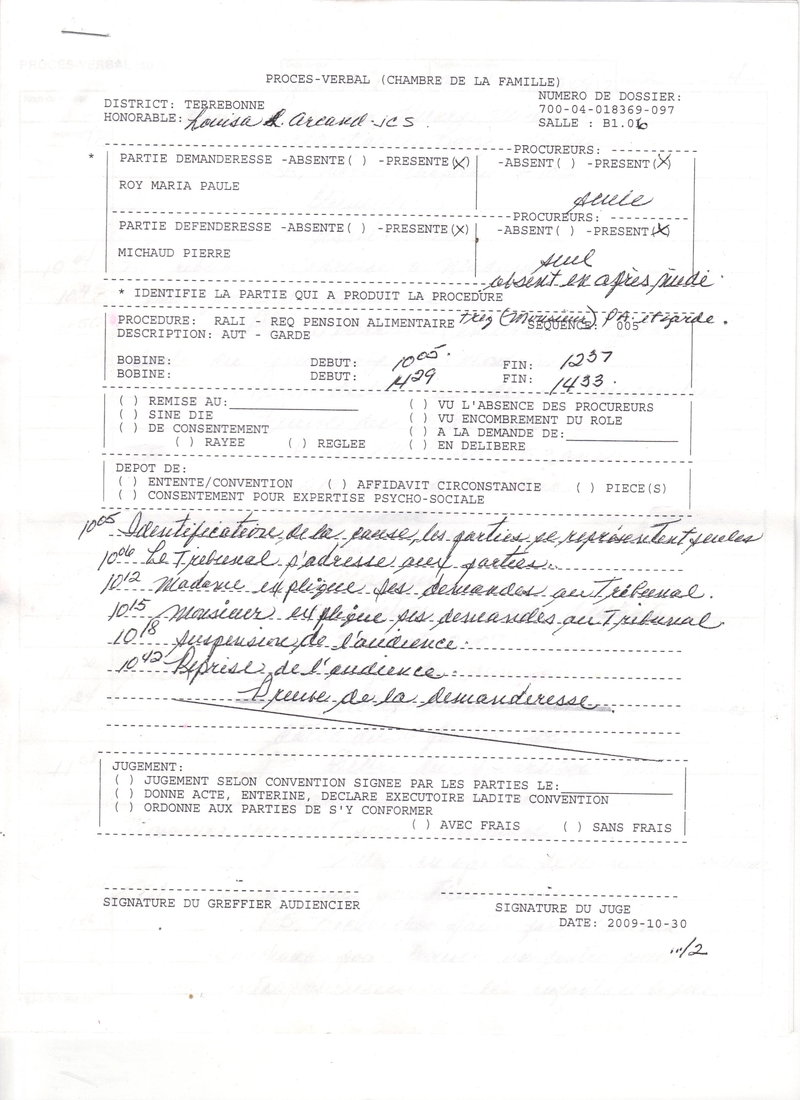 PROCES-VERBAL (CHAMBRE DE LA FAMILLE)
DISTRICT: TERREBONNE
NUMERO DE DOSSIER:
HONORABLE: Louisa L. Arcand JCS
700-04-018369-097
SALLE : B1.06
PROCUREURS:
* PARTIE DEMANDERESSE -ABSENTE( ) -PRESENTE(X) -ABSENT( ) -PRESENT(X)
ROY MARIA PAULE
seule
PROCUREURS:
PARTIE DEFENDERESSE -ABSENTE( ) -PRESENTE(X) -ABSENT( ) -PRESENT(X)
MICHAUD PIERRE
seul
absent en après midi
* IDENTIFIE LA PARTIE QUI A PRODUIT LA PROCEDURE
PROCEDURE: RALI - REQ PENSION ALIMENTAIRE Req (Monsieur) PA et garde.
SEQUENCE: 005
DESCRIPTION: AUT - GARDE
BOBINE: DEBUT: 10 05 FIN: 1237
BOBINE: DEBUT: 1429 FIN: 1433
( ) REMISE AU: ( ) VU L'ABSENCE DES PROCUREURS
( ) SINE DIE ( ) VU ENCOMBREMENT DU ROLE
( ) DE CONSENTEMENT ( ) A LA DEMANDE DE:
( ) RAYEE ( ) REGLEE ( ) EN DELIBERE
DEPOT DE:
( ) ENTENTE/CONVENTION ( ) AFFIDAVIT CIRCONSTANCIE ( ) PIECE(S)
( ) CONSENTEMENT POUR EXPERTISE PSYCHO-SOCIALE
10 05 Identification de la cause, les parties se représentent seules
10 06 Le Tribunal s'adresse aux parties.
10 12 Madame explique ses demandes au Tribunal.
10 15 Monsieur explique ses demandes au Tribunal.
10 18 Suspension de l'audience.
10 42 Reprise de l'audience.
Preuve de la demanderesse
JUGEMENT:
( ) JUGEMENT SELON CONVENTION SIGNEE PAR LES PARTIES LE:
( ) DONNE ACTE, ENTERINE, DECLARE EXECUTOIRE LADITE CONVENTION
( ) ORDONNE AUX PARTIES DE S'Y CONFORMER
( ) AVEC FRAIS ( ) SANS FRAIS
SIGNATURE DU GREFFIER AUDIENCIER
SIGNATURE DU JUGE
DATE: 2009-10-30
.../2